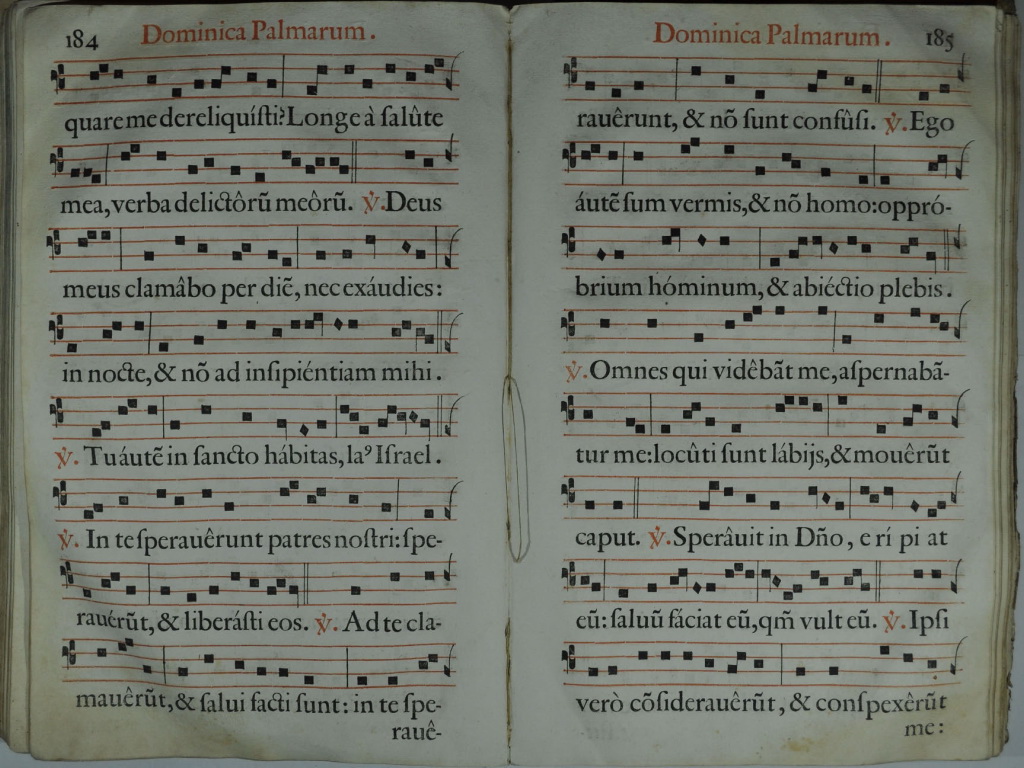 184 Dominica Palmarum.
quare me dereliquíſti? Longe à ſalûte
mea, verba delictôrũ meôrũ. ℣. Deus
meus clamâbo per diẽ, nec exáudies:
in nocte, & nõ ad inſipiéntiam mihi.
℣. Tu áutẽ in ſancto hábitas, laꝰ Iſrael.
℣. In te ſperauêrunt patres noſtri: ſpe-
rauérũt, & liberáſti eos. ℣. Ad te cla-
mauêrũt, & ſalui facti ſunt: in te ſpe-
rauê-
Dominica Palmarum. 185
rauêrunt, & nõ ſunt confûſi. ℣. Ego
áutẽ ſum vermis, & nõ homo: oppró-
brium hóminum, & abiéctio plebis.
℣. Omnes qui vidêbãt me, aſpernabã-
tur me: locûti ſunt lábijs, & mouêrũt
caput. ℣. Sperâuit in Dño, e rí pi at
eũ: ſaluũ fáciat eũ, qm̃ vult eũ. ℣. Ipſi
verò cõſiderauêrũt, & conſpexêrũt
me: